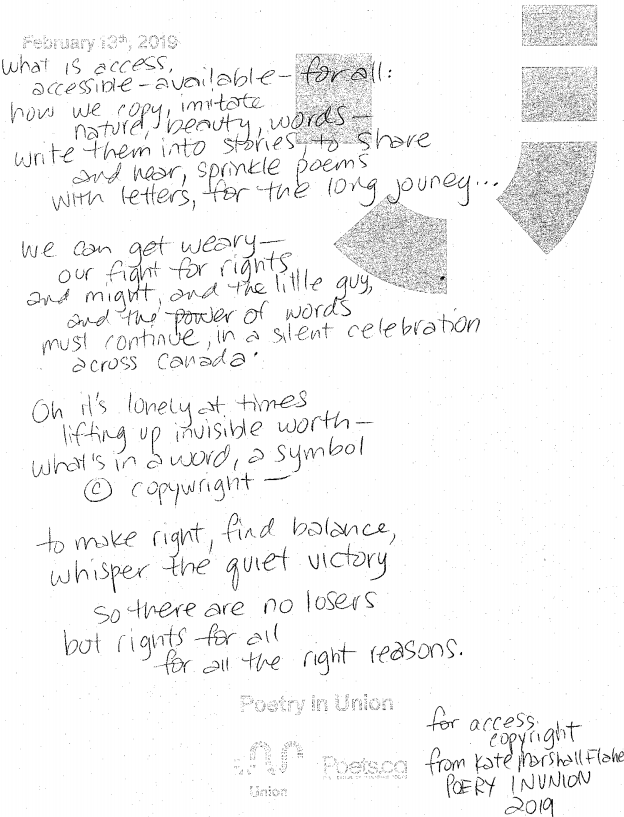 February 13th, 2019
what is access,
accessible-available-for all:
how we copy, imitate
nature, beauty, words—
write them into stories, to share
and hear, sprinkle poems
with letters, for the long jouney...
we can get weary—
our fight for rights
and might, and the little guy,
and the power of words
must continue, in a silent celebration
across Canada.
Oh it's lonely at times
lifting up invisible worth—
what's in a word, a symbol
© copywright—
to make right, find balance,
whisper the quiet victory
so there are no losers
but rights for all
for all the right reasons.
Poetry in Union
Union
Poets.ca
for access
copyright
from Kate Marshall Flahe
POERY IN UNION
2019